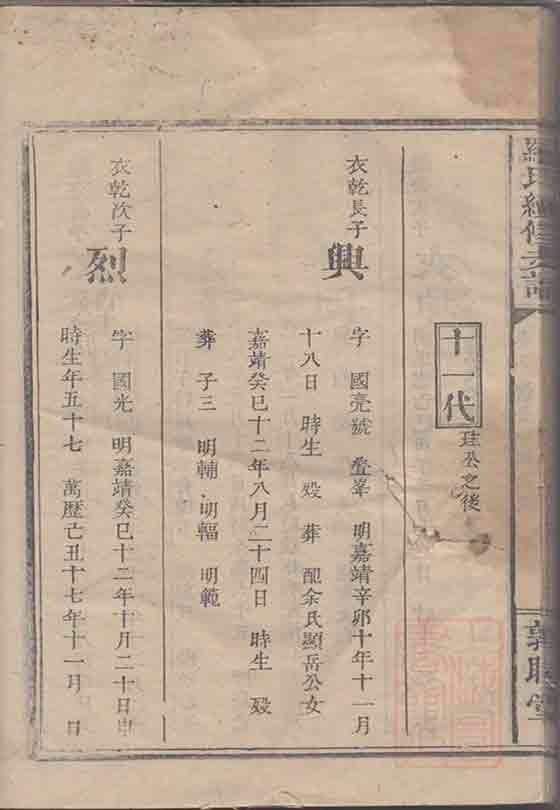 羅氏經修六譜
敦睦堂
十一代
珪公之後
衣乾長子
興
字 國亮號 疊峯 明嘉靖辛卯十年十一月
十八日 時生 殁 葬 配余氏顯岳公女
嘉靖癸巳十二年八月二十四日 時生 殁
葬 子三 明輔 明輻 明範
衣乾次子
烈
字 國光 明嘉靖癸巳十二年十月二十日申
時生年五十七 萬歷己丑十七年十一月 日